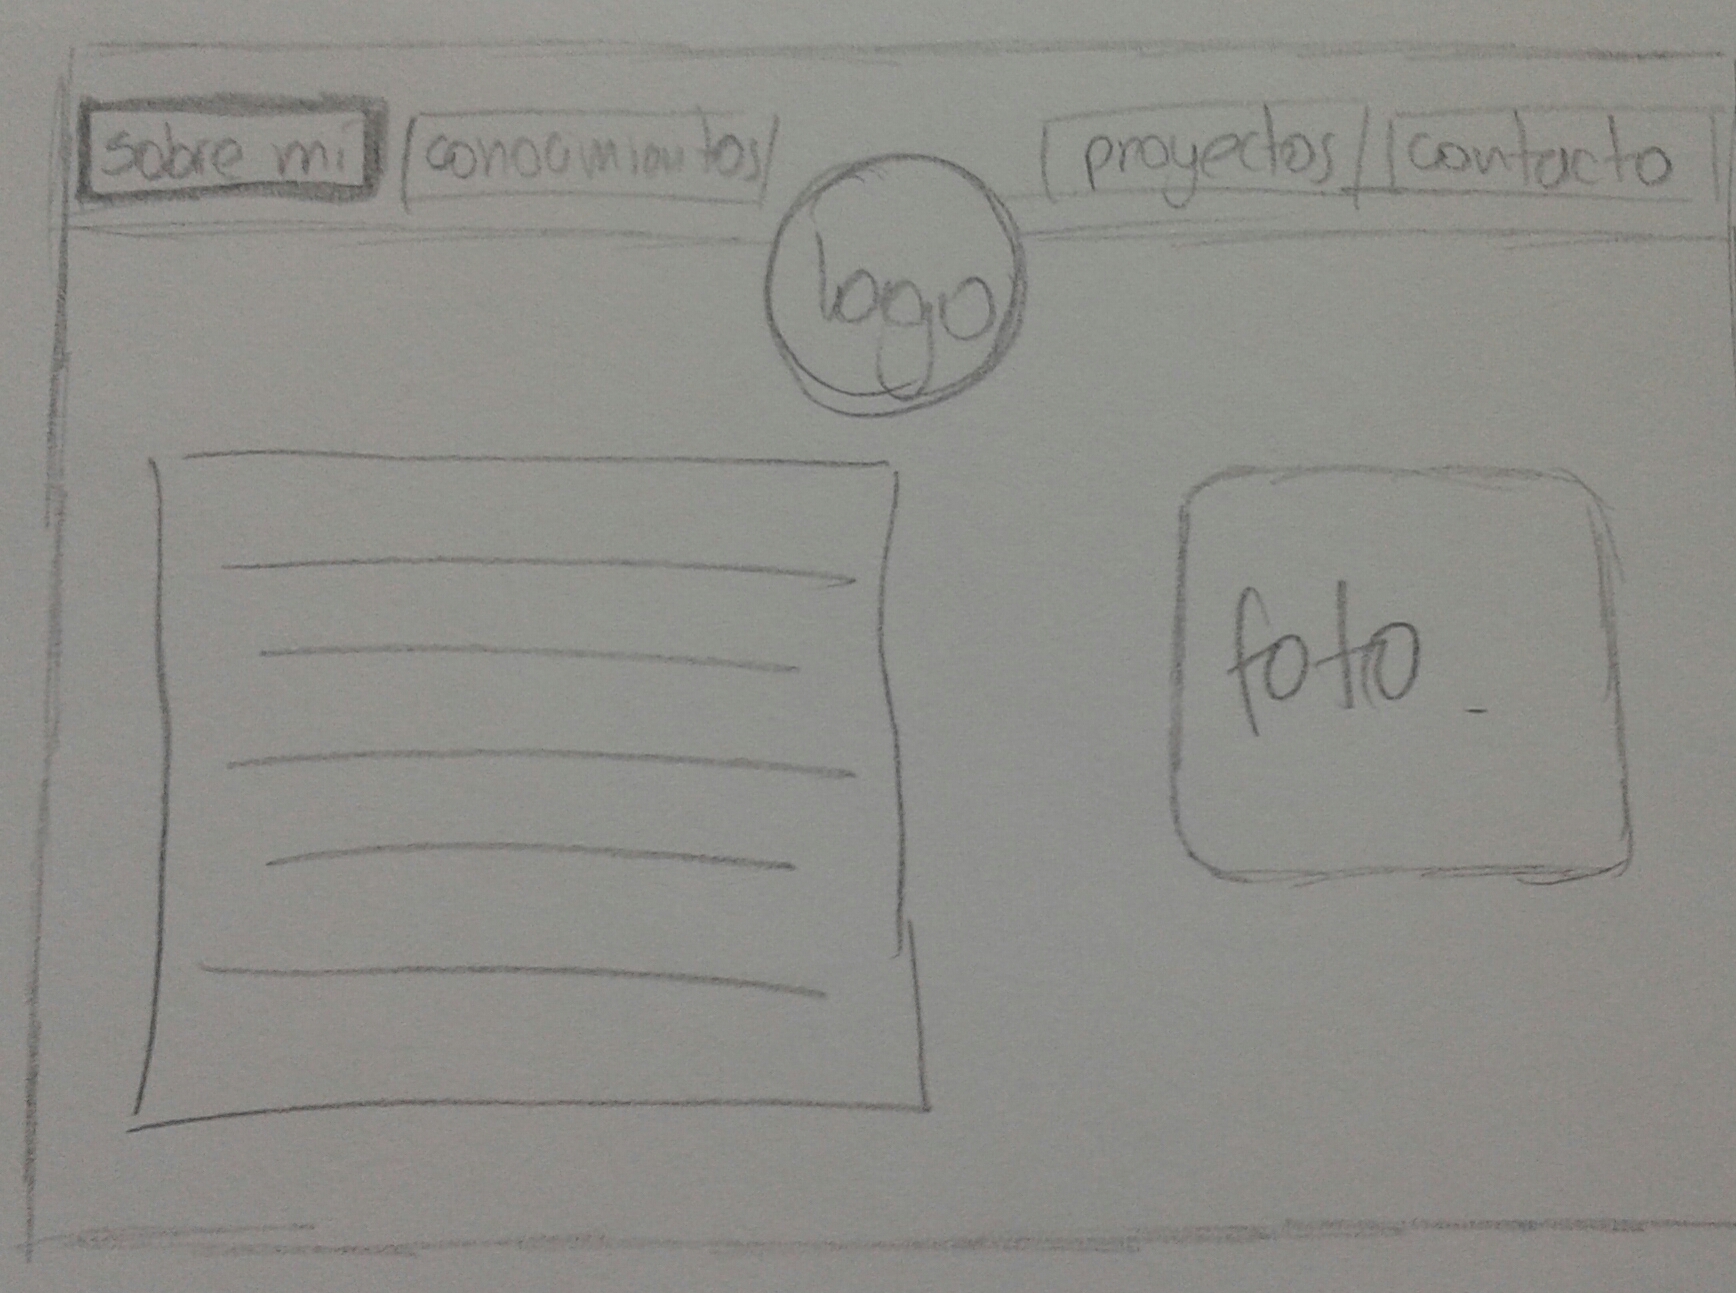 sobre mi conocimientos proyectos contacto
logo
foto